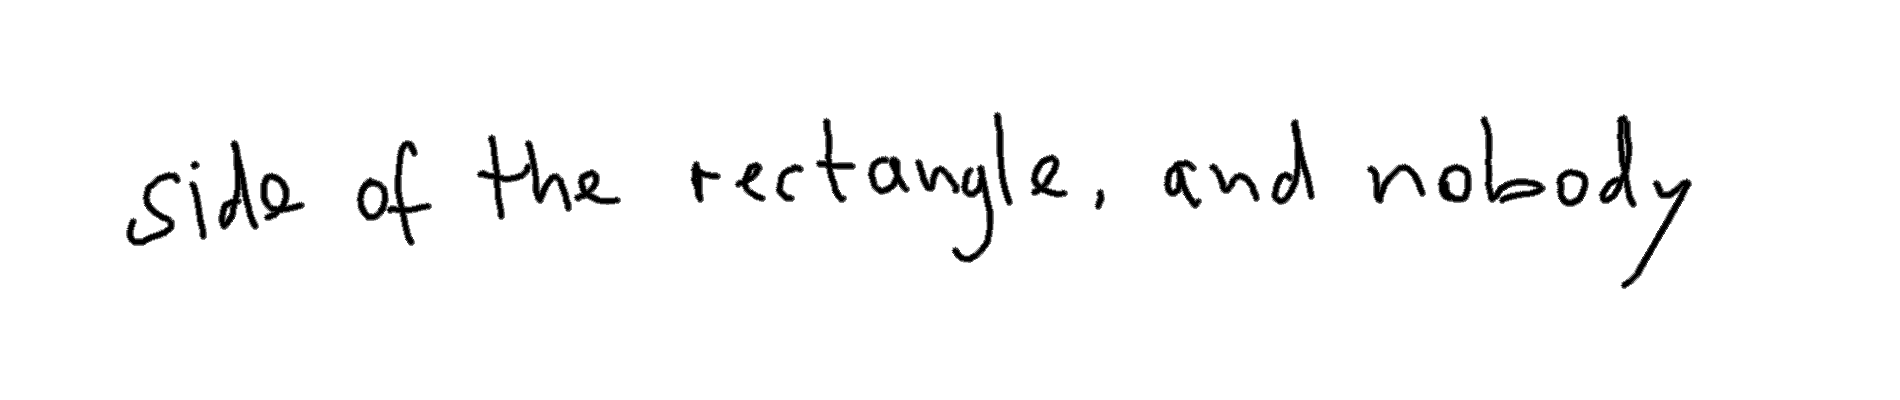 side of the rectangle, and nobody